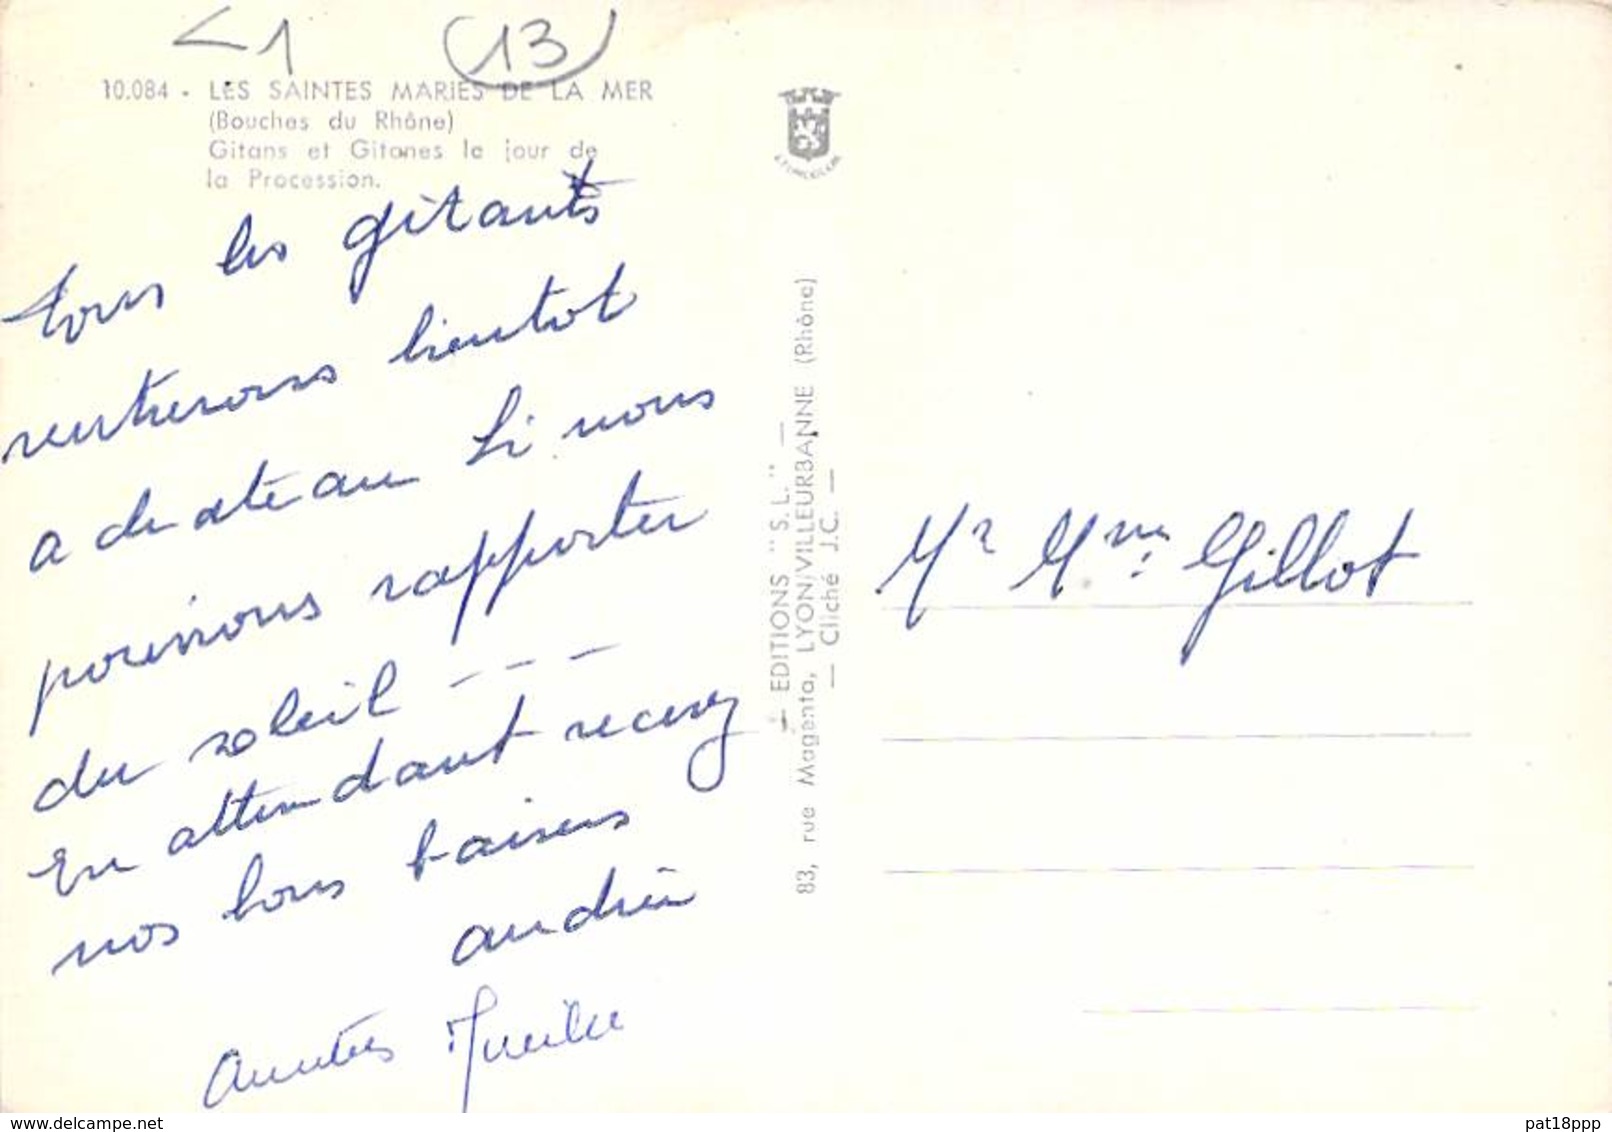 <1 (13)
10.084 - LES SAINTES MARIES DE LA MER
(Bouches du Rhône)
Gitans et Gitanes le jour de
la Procession.
Tous les gitants
rentrerons bientot
a chateau Si nous
pouvons rapporter
du soleil - - -
En attendant recevez
nos bons baisers
andrée
Amitiés
— EDITIONS "S.L." —
83, rue Magenta, LYON/VILLEURBANNE (Rhône)
— Cliché J.C. —
Mr Mme Gillot
www.delcampe.net
pat18ppp